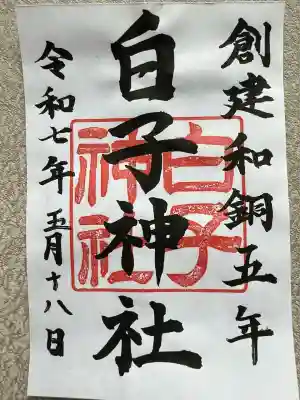 創建和銅五年
白子神社
白子神社
令和七年五月十八日